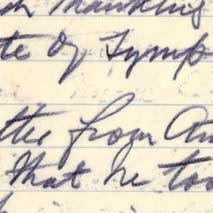 thanking
te of symp
tter from An
that he too